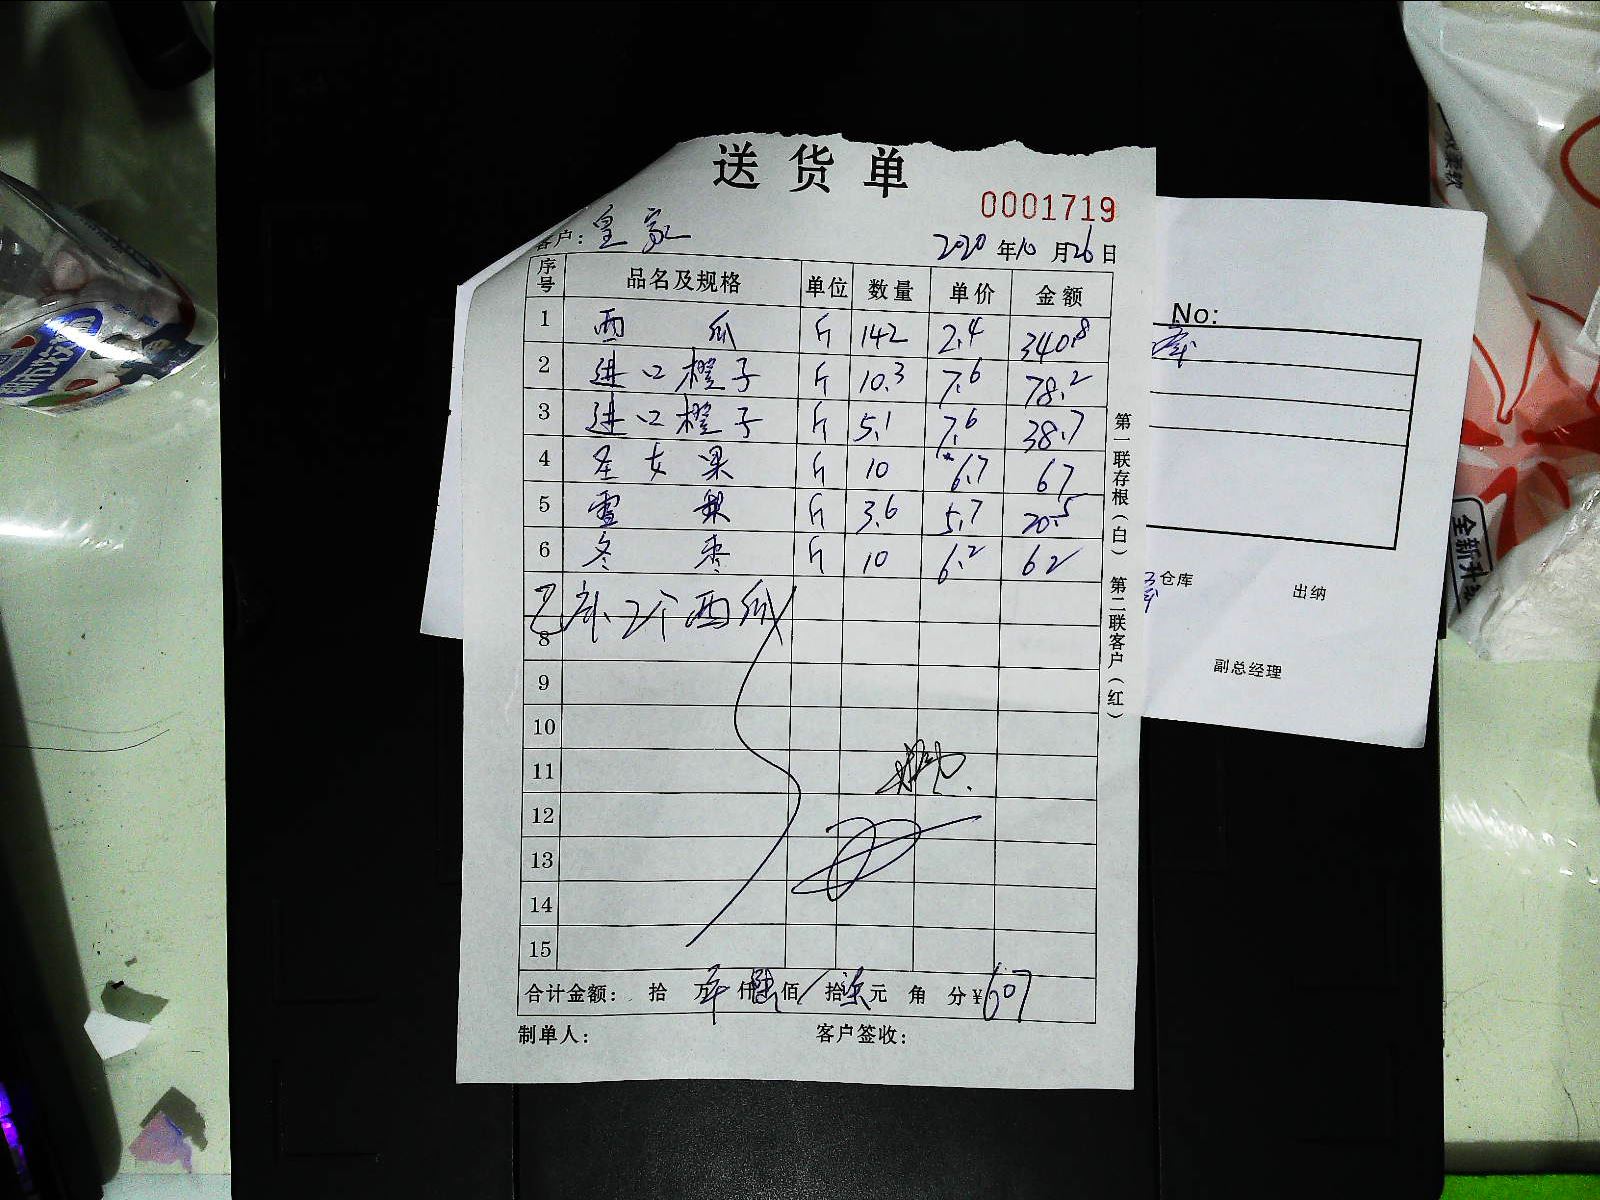 送货单
0001719
客户：皇家 2020年10月26日
序号 品名及规格 单位 数量 单价 金额
1 西瓜 斤 142 2.4 340.8
2 进口橙子 斤 10.3 7.6 78.2
3 进口橙子 斤 5.1 7.6 38.7
4 圣女果 斤 10 6.7 67
5 雪梨 斤 3.6 5.7 20.5
6 冬枣 斤 10 6.2 62
补2个西瓜
8
9
10
11
12
13
14
15
合计金额： 拾 万 仟陆佰 拾柒元 角 分¥607
制单人： 客户签收：
第一联存根（白） 第二联客户（红）
No:
仓库 出纳
副总经理
全新升